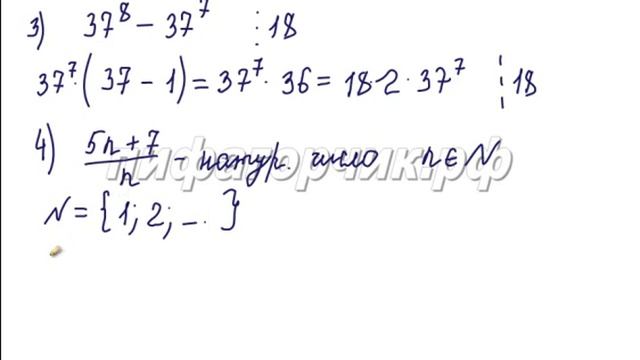 3) 37⁸ − 37⁷ ⋮ 18
37⁷·(37 − 1) = 37⁷·36 = 18·2·37⁷ ⋮ 18
4) (5n+7)/n - натур. число n ∈ N
пифагорчик.рф
N = {1; 2; ...}